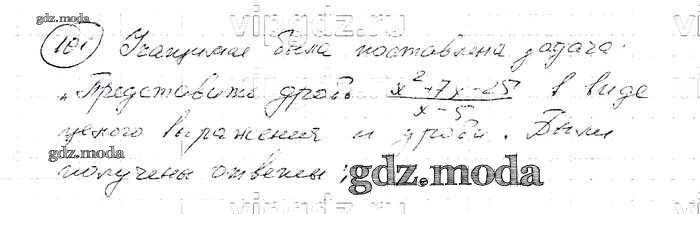 gdz.moda
vipgdz.ru
101 Учащимся была поставлена задача:
„Представить дробь (x²+7x-25)/(x-5) в виде
целого выражения и дроби. Были
gdz.moda
получены ответы:
gdz.moda
vipgdz.ru